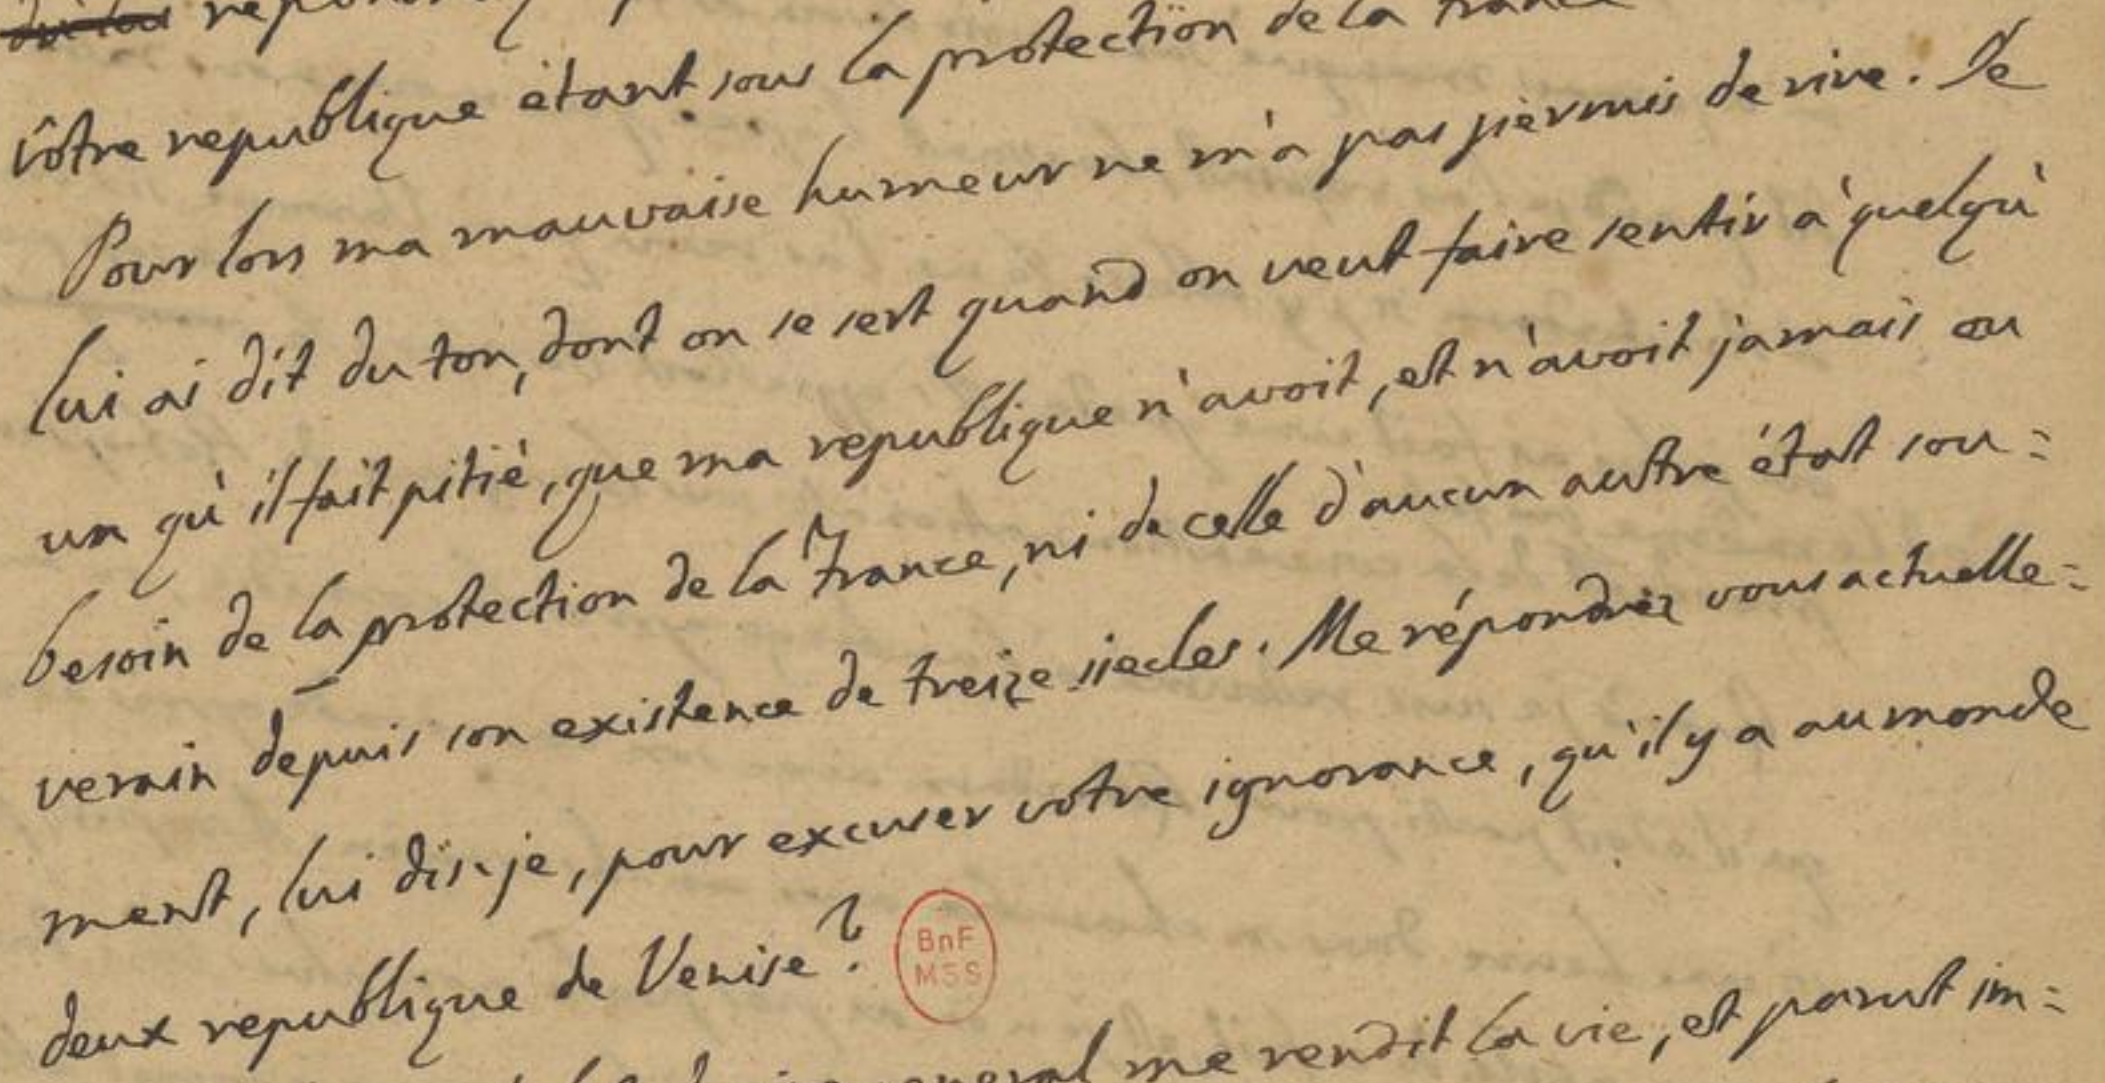 vôtre republique étant sous la protection de la France
Pour lors ma mauvaise humeur ne m'a pas permis de rire. Je
lui ai dit du ton, dont on se sert quand on veut faire sentir à quelqu'
un qu'il fait pitié, que ma republique n'avoit, et n'avoit jamais eu
besoin de la protection de la France, ni de celle d'aucun autre état sou=
verain depuis son existence de treize siecles. Me répondrez vous actuelle=
ment, lui dis-je, pour excuser votre ignorance, qu'il y a au monde
deux republique de Venise?
BnF
MSS
general me rendit la vie, et parut im=